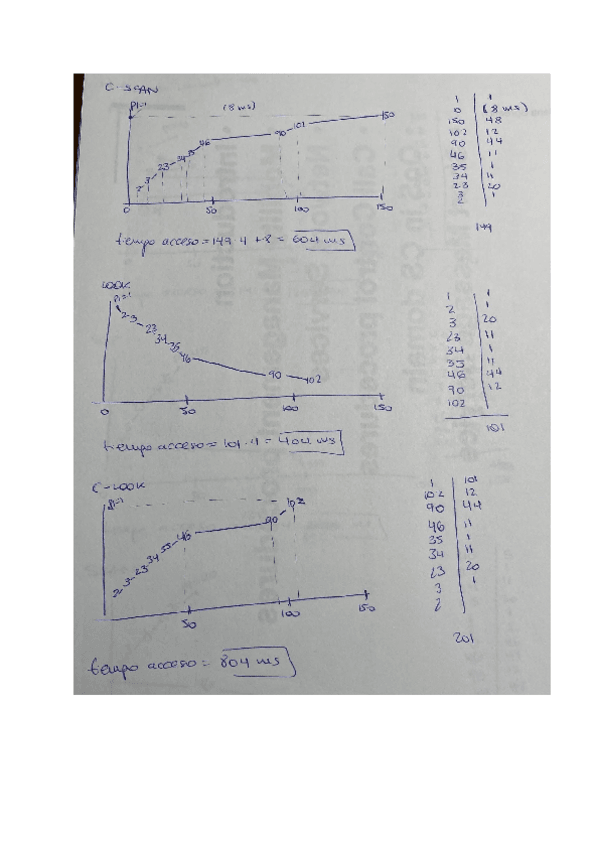 C-SCAN
PI=1
(8 ms)
2 3 23 34 35 46 90 102 150
0 50 100 150
1 1
0 (8 ms)
150 48
102 12
90 44
46 11
35 1
34 11
23 20
3 1
2
149
tiempo acceso = 149·4 + 8 = 604 ms
LOOK
PI=1
2 3 23 34 35 46 90 102
0 50 100 150
1 1
2 1
3 20
23 11
34 1
35 11
46 44
90 12
102
101
tiempo acceso = 101·4 = 404 ms
C-LOOK
PI=1
2 3 23 34 35 46 90 102
50 100 150
1 101
102 12
90 44
46 11
35 1
34 11
23 20
3 1
2
201
tiempo acceso = 804 ms